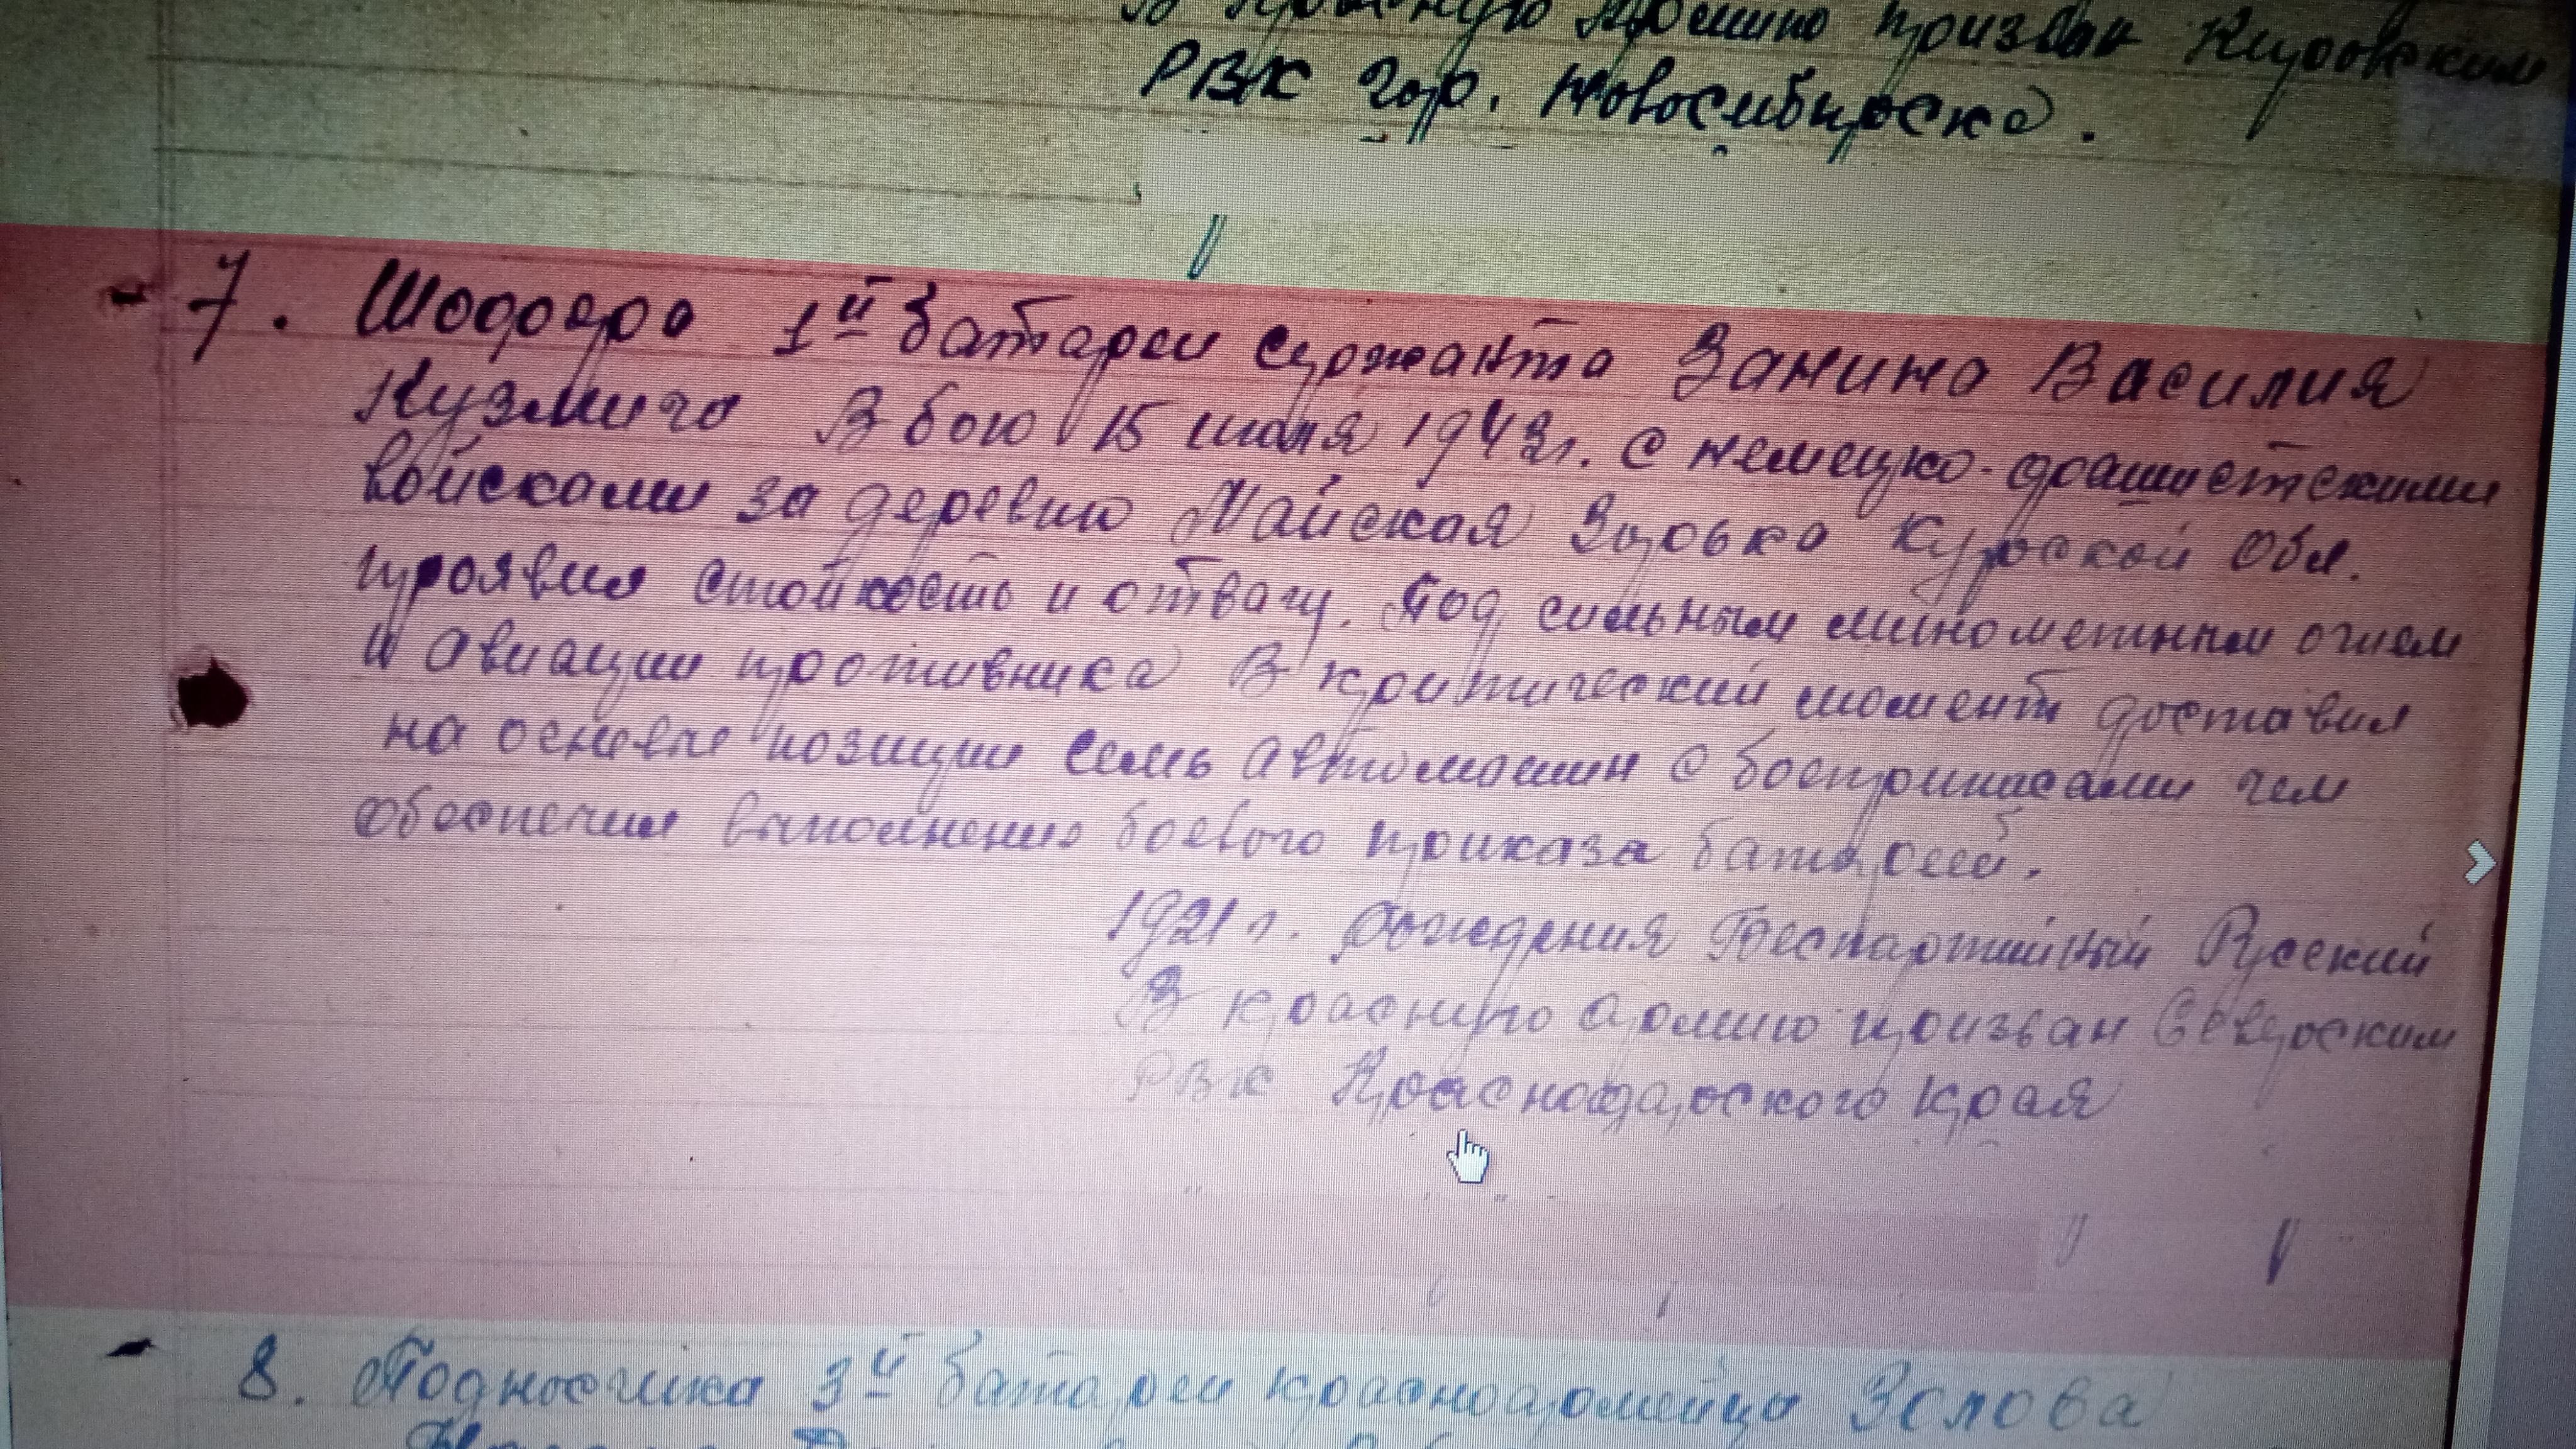 Красную Армию призван Кировским
РВК гор. Новосибирска.
7. Шофера 1й батареи сержанта Занина Василия
Кузмича В бою 15 июля 1943г. с немецко-фашистскими
войсками за деревню Майская Зорька Курской Обл.
проявил стойкость и отвагу. Под сильным минометным огнем
и авиации противника В критический момент доставил
на основе позиции семь автомашин с боеприпасами чем
обеспечил выполнение боевого приказа батареей.
1921 г. рождения Беспартийный Русский
В красную армию призван Северским
РВК Краснодарского края
8. Подносчика 3й батареи красноармейца